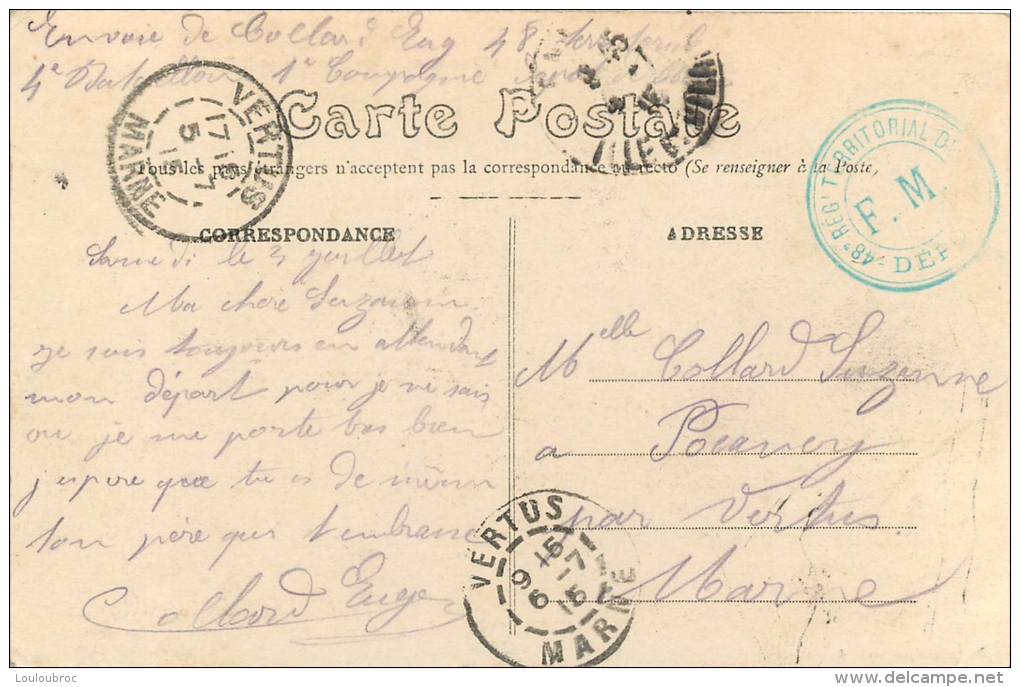 Envoie de Collard Eug 48 territorial
4e Bataillon 1e Compagnie
Carte Postale
Tous les pays étrangers n'acceptent pas la correspondance au recto (Se renseigner à la Poste,
VERTUS
17 15
5 -7
15
MARNE
48e RÉGt TERRITORIAL D'
F. M.
DÉP
CORRESPONDANCE
ADRESSE
Samedi le 3 juillet
Ma chere Suzanne
je suis toujours en attendant
mon départ pour je ne sais
ou je me porte tres bien
j'espere que tu es de même
ton père qui t'embrasse
Collard Eugene
Melle Collard Suzenne
a Pocancy
par Vertus
Marne
VERTUS
9 15
6 -7
15
MARNE
Louloubroc
www.delcampe.net